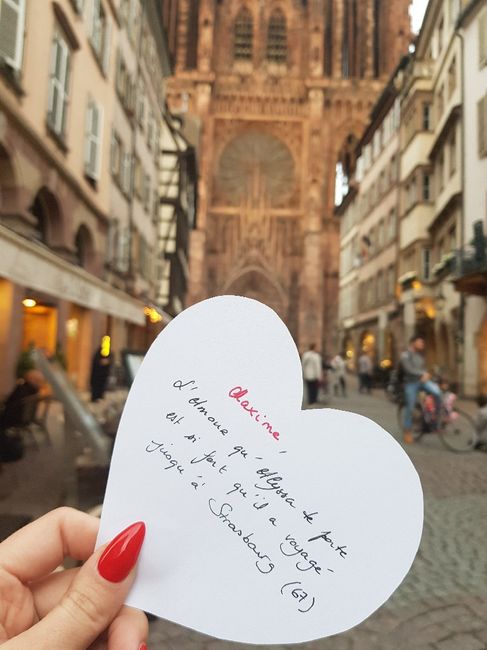 Maxime,
L'Amour qu'Elyssa te porte
est si fort qu'il a voyagé
jusqu'à Strasbourg (67)